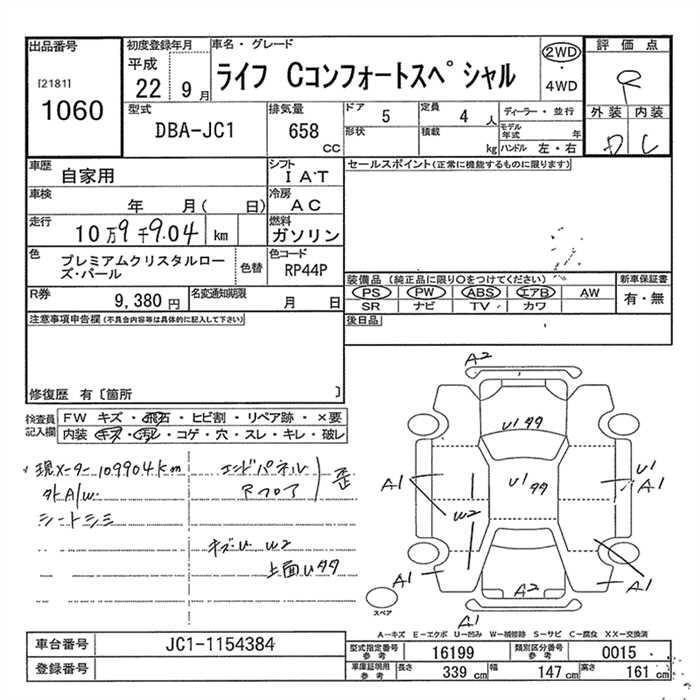 出品番号
[2181]
1060
初度登録年月
平成
22年 9月
車名・グレード
ライフ Cコンフォートスペシャル
2WD
・
4WD
評価点
R
外装 内装
D C
型式
DBA-JC1
排気量
658
CC
ドア 5
定員 4 人
形状
積載 kg
ディーラー・並行
モデル年式 年
ハンドル 左・右
車歴
自家用
シフト
IAT
セールスポイント(正常に機能するものに限ります)
車検
年 月( 日)
冷房
AC
走行
10万9千9.04 km
燃料
ガソリン
色
プレミアムクリスタルローズ・パール
色替
色コード
RP44P
R券
9,380円
名変通知期限
月 日
装備品(純正品に限り○をつけてください)
PS PW ABS エアB AW
SR ナビ TV カワ
新車保証書
有・無
後日品
注意事項申告欄(不具合内容等は具体的に記入して下さい)
修復歴 有〔箇所 〕
検査員記入欄
FW キズ・飛石・ヒビ割・リペア跡・×要
内装 キズ・汚れ・コゲ・穴・スレ・キレ・破レ
現メーター109904km
外A/W
シートシミ
エンドパネル
Rフロア
歪
キズ・U W2
上面Uタタ
A2
U1タタ
U1タタ
A1
W2
U1
A1
A1
A2
A1
A1
スペア
A-キズ E-エクボ U-凹み W-補修跡 S-サビ C-腐食 XX-交換済
車台番号
JC1-1154384
登録番号
型式指定番号
参考
16199
類別区分番号
参考
0015
車庫証明用
参考
長さ 339 cm
幅 147 cm
高さ 161 cm